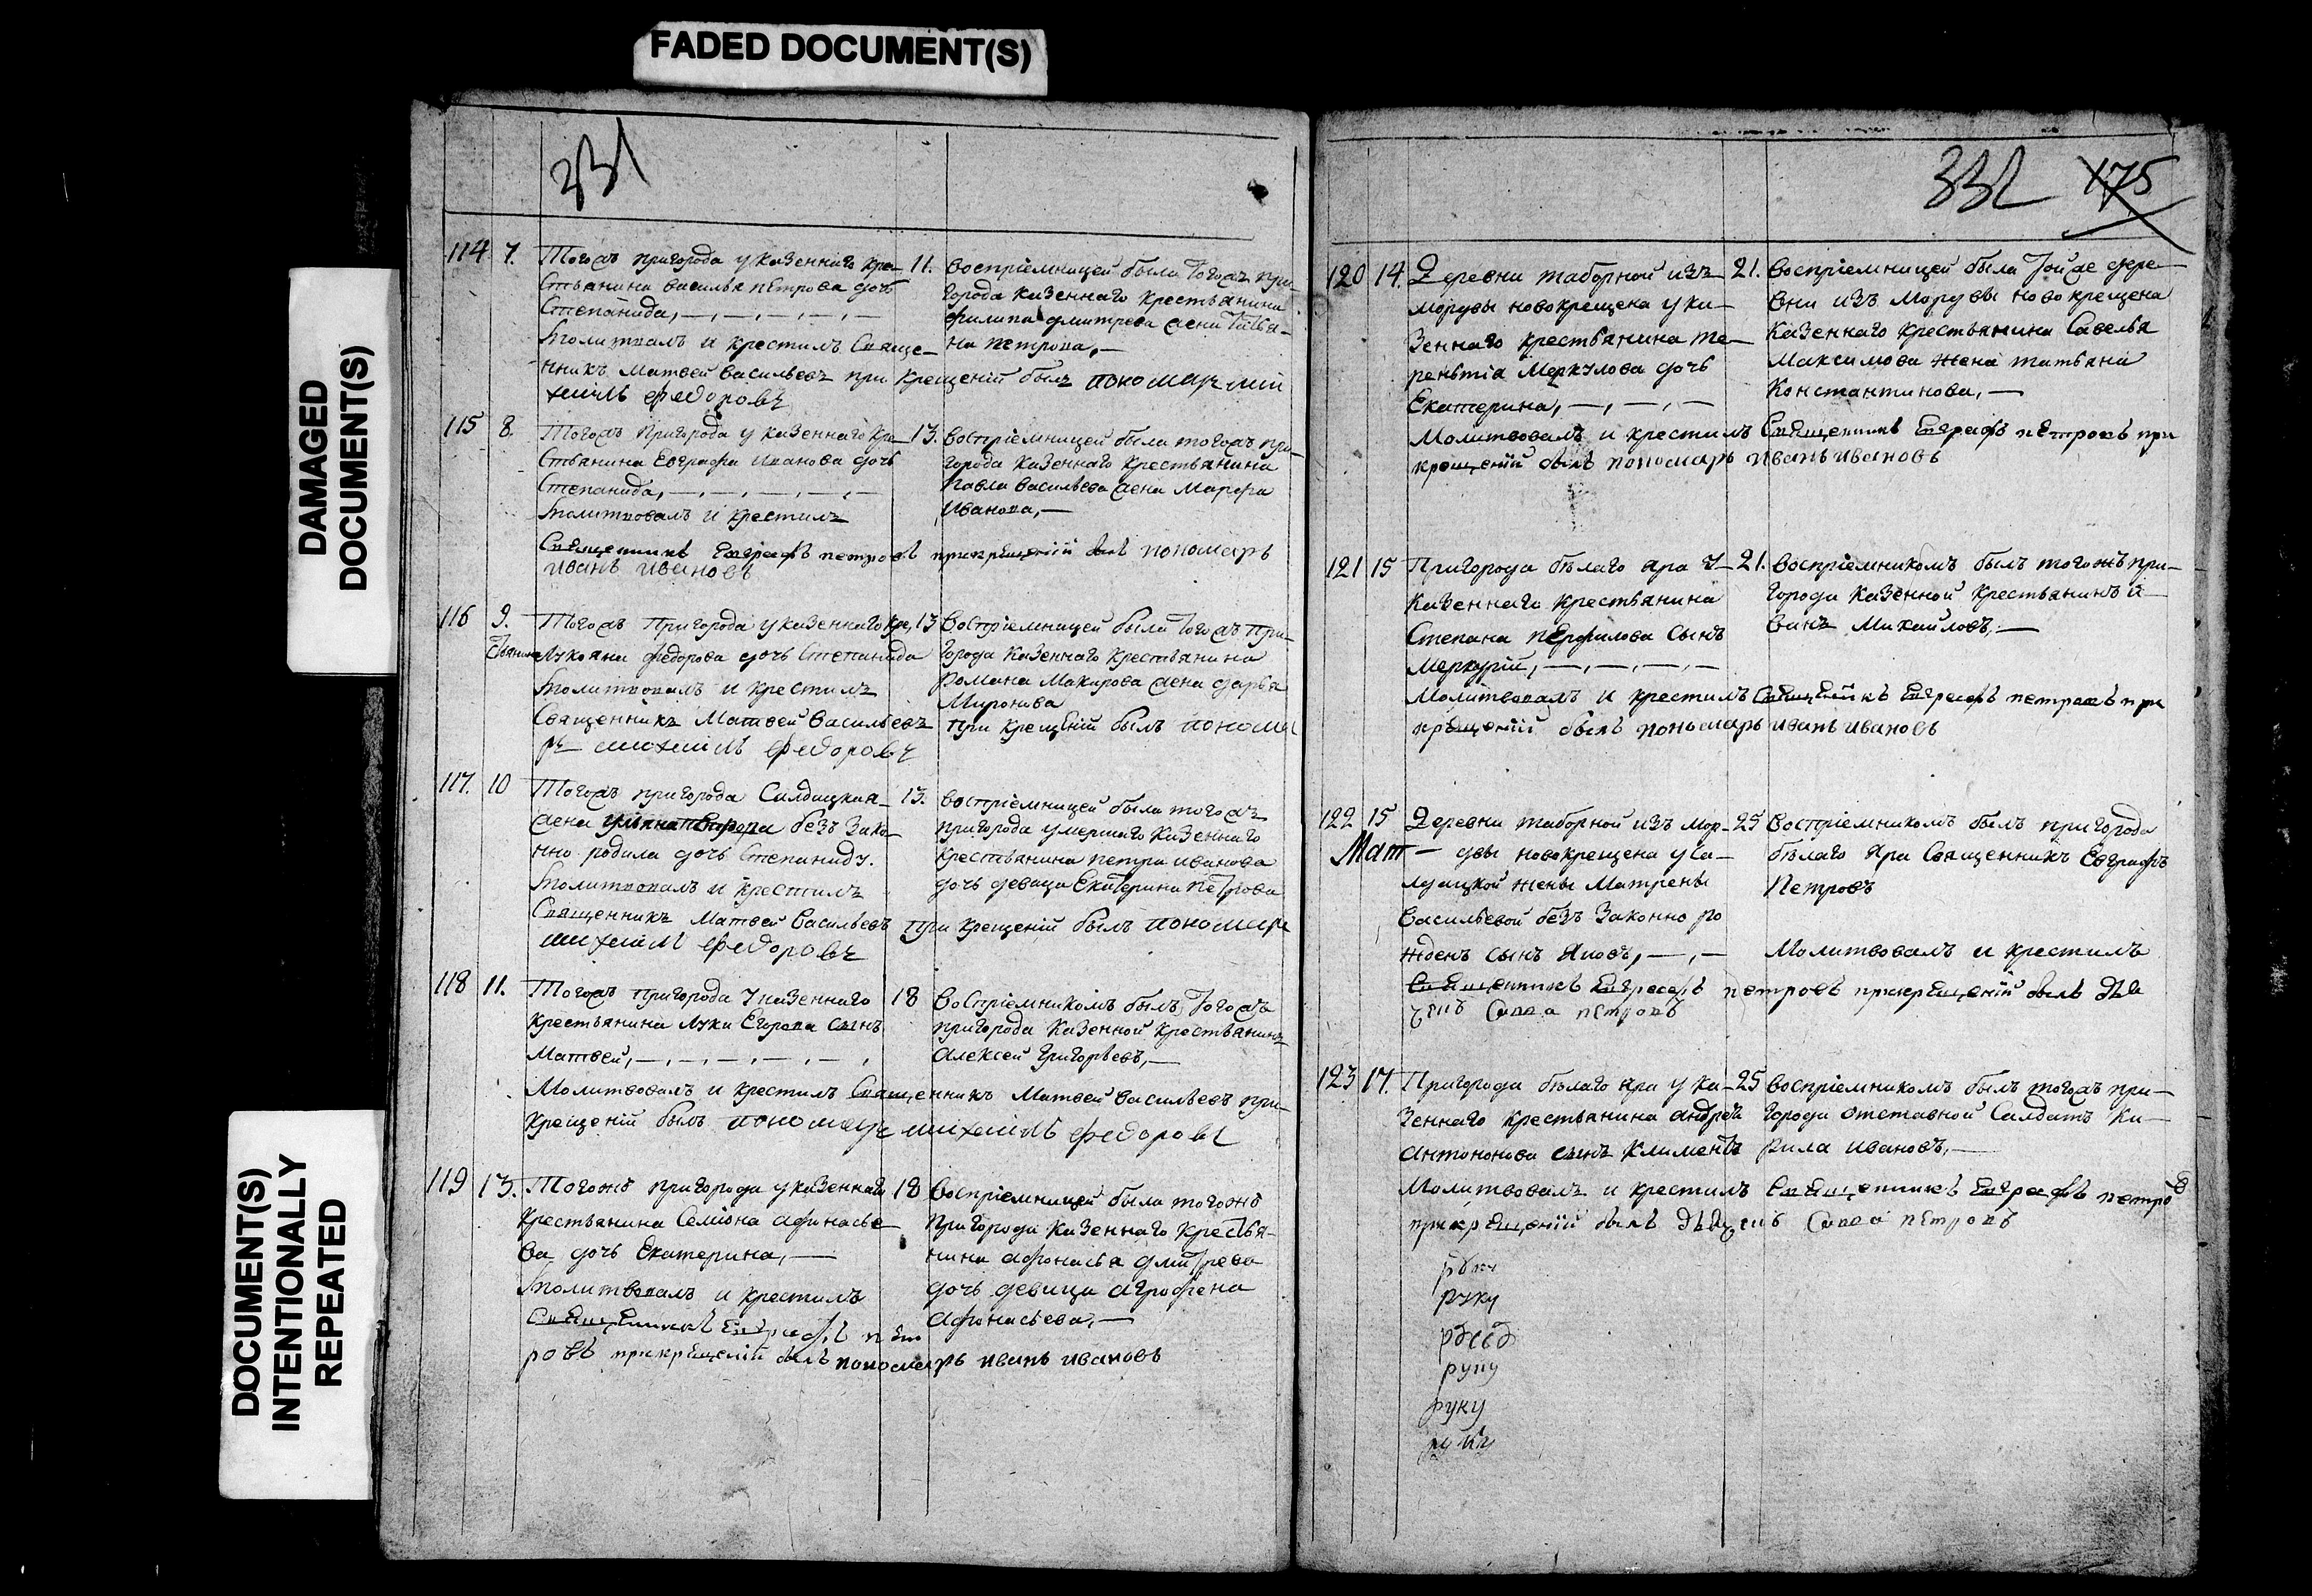 FADED DOCUMENT(S)
DAMAGED
DOCUMENT(S)
DOCUMENT(S)
INTENTIONALLY
REPEATED
331
114 7. Тогожъ пригорода у казеннаго кре-
стьянина василья петрова дочь
Степанида, — , — , — , — , —
Молитвовалъ и крестилъ Свяще-
нникъ Матвей васильевъ при крещенiй былъ пономарь ми
хаилъ федоровъ
11. восприемницей была тогожъ при-
города казеннаго крестьянина
филипа дмитрева жена татья-
на петрова, —
115 8. Тогожъ пригорода у казеннаго кре-
стьянина Евграфа иванова дочь
Степанида, — , — , — , — , —
Молитвовалъ и крестилъ
Священникъ Евграфъ петровъ прикрещенiй былъ пономарь
иванъ ивановъ
13. восприемницей была тогожъ при-
города казеннаго крестьянина
павла васильева жена марфа
иванова, —
116 9. Тогожъ пригорода у казеннаго кре,
стьянина Лукояна федорова дочь Степанида
Молитвовалъ и крестилъ
Священникъ Матвей васильевъ при крещенiй былъ понома
рь михаилъ федоровъ
13 восприемницей была тогожъ при-
города казеннаго крестьянина
романа макарова жена дарья
Миронова
117. 10 Тогожъ пригорода Салдацкая
жена беззако-
нно родила дочь Степаниду.
Молитвовалъ и крестилъ
Священникъ Матвей васильевъ при крещенiй былъ пономарь
михаилъ федоровъ
13. восприемницей была тогожъ
пригорода умершаго казеннаго
крестьянина петра иванова
дочь девица Екатерина петрова
118 11. Тогожъ пригорода у казеннаго
крестьянина Луки Егорова сынъ
Матвей, — , — , — , — , — ,
Молитвовалъ и крестилъ Священникъ Матвей васильевъ при
крещенiй былъ пономарь михаилъ федоровъ
18 восприемникомъ былъ тогожъ
пригорода казенной крестьянинъ
алексей григорьевъ, —
119 13. Тогожъ пригорода у казеннаго
крестьянина Семiона афонасье-
ва дочь Екатерина, —
Молитвовалъ и крестилъ
Священникъ Евграфъ пет
ровъ прикрещенiй былъ пономарь иванъ ивановъ
18 восприемницей была тогожъ
пригорода казеннаго крестья-
нина афонасья дмитрева
дочь девица агрофена
афонасьева, —
332 175
120 14. Деревни таборной изъ
морувы новокрещена у ка-
зеннаго крестьянина те-
рентiя Меркулова дочь
Екатерина, — , — , —
Молитвовалъ и крестилъ Священникъ Евграфъ петровъ при
крещенiй былъ пономарь иванъ ивановъ
21. восприемницей была тойже дере-
вни изъ морувы новокрещена
казеннаго крестьянина Савелья
Максимова жена татьяна
Константинова, —
121 15 Пригорода белаго яра у
казеннаго крестьянина
Степана перфилова сынъ
Меркурiй, — , — , — , —
Молитвовалъ и крестилъ Священникъ Евграфъ петровъ при
крещенiй былъ пономарь иванъ ивановъ
21. восприемникомъ былъ тогожъ при-
города казенной крестьянинъ и
ванъ Михаиловъ, —
122 15 Деревни таборной изъ мор-
Мат — двы новокрещена у са-
лдацкой жены Матрены
васильевой беззаконно ро
жденъ сынъ Яковъ, — , —
Священникъ Евграфъ петровъ прикрещенiй былъ дья
чекъ Савва петровъ
25 восприемникомъ былъ пригорода
белаго яра Священникъ Евграфъ
Петровъ
Молитвовалъ и крестилъ
123 17. Пригорода белаго яра у ка-
зеннаго крестьянина андрея
антонова сынъ Климентъ
Молитвовалъ и крестилъ Священникъ Евграфъ петровъ
прикрещенiй былъ дьячекъ Савва петровъ
25 восприемникомъ былъ тогожъ при-
города отставной Салдатъ Ки-
рила ивановъ, —
руку
руку
руку
руку